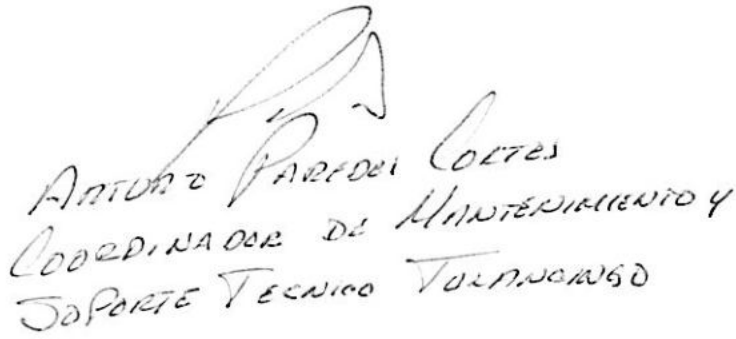 ARTURO PAREDES CORTES
COORDINADOR DE MANTENIMIENTO Y
SOPORTE TECNICO TULANCINGO